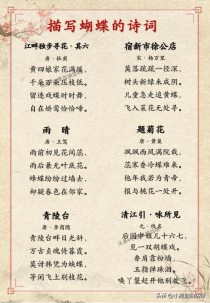 描写蝴蝶的诗词
江畔独步寻花·其六
唐·杜甫
黄四娘家花满蹊,
千朵万朵压枝低。
留连戏蝶时时舞,
自在娇莺恰恰啼。
宿新市徐公店
宋·杨万里
篱落疏疏一径深,
树头新绿未成阴。
儿童急走追黄蝶,
飞入菜花无处寻。
雨晴
唐·王驾
雨前初见花间蕊,
雨后无叶底花。
蜂蝶纷纷过墙去,
却疑春色在邻家。
题菊花
唐·黄巢
飒飒西风满院栽,
蕊寒香冷蝶难来。
他年我若为青帝,
报与桃花一处开。
青陵台
唐·李商隐
青陵台畔日光斜,
万古贞魂倚暮霞。
莫讶韩凭为蛱蝶,
等闲飞上别枝花。
清江引·咏所见
元·佚名
后园中姐儿十六七,
见一双胡蝶戏。
香肩靠粉墙,
玉指弹珠泪。
唤丫鬟赶开他别处飞。